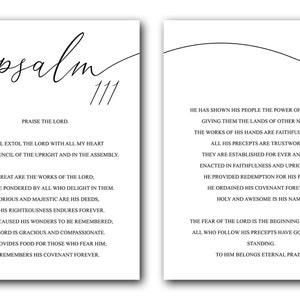 psalm
111
PRAISE THE LORD.
EXTOL THE LORD WITH ALL MY HEART
OF THE UPRIGHT AND IN THE ASSEMBLY.
GREAT ARE THE WORKS OF THE LORD;
PONDERED BY ALL WHO DELIGHT IN THEM.
AND MAJESTIC ARE HIS DEEDS,
HIS RIGHTEOUSNESS ENDURES FOREVER.
CAUSED HIS WONDERS TO BE REMEMBERED;
LORD IS GRACIOUS AND COMPASSIONATE.
PROVIDES FOOD FOR THOSE WHO FEAR HIM;
REMEMBERS HIS COVENANT FOREVER.
HE HAS SHOWN HIS PEOPLE THE POWER OF
GIVING THEM THE LANDS OF OTHER
THE WORKS OF HIS HANDS ARE
ALL HIS PRECEPTS ARE
THEY ARE ESTABLISHED FOR EVER
ENACTED IN FAITHFULNESS AND
HE PROVIDED REDEMPTION FOR HIS
HE ORDAINED HIS COVENANT
HOLY AND AWESOME IS HIS
THE FEAR OF THE LORD IS THE
ALL WHO FOLLOW HIS PRECEPTS HAVE
STANDING.
TO HIM BELONGS ETERNAL